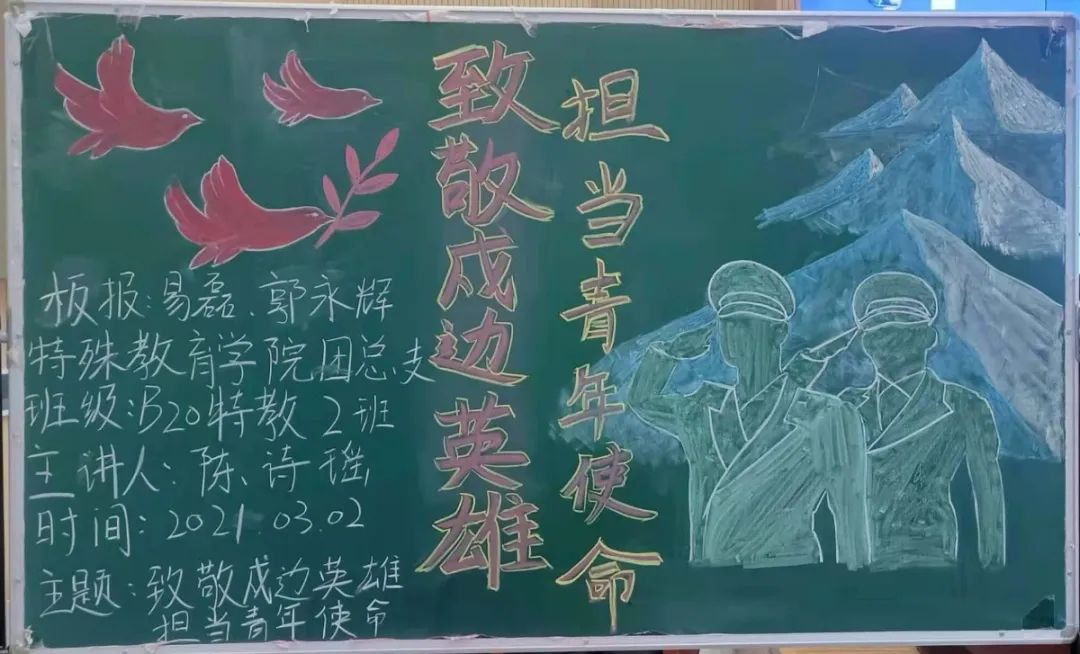 致敬戍边英雄
担当青年使命
板报:易磊、郭永辉
特殊教育学院团总支
班级:B20特教2班
主讲人:陈诗瑶
时间:2021.03.02
主题:致敬戍边英雄
担当青年使命